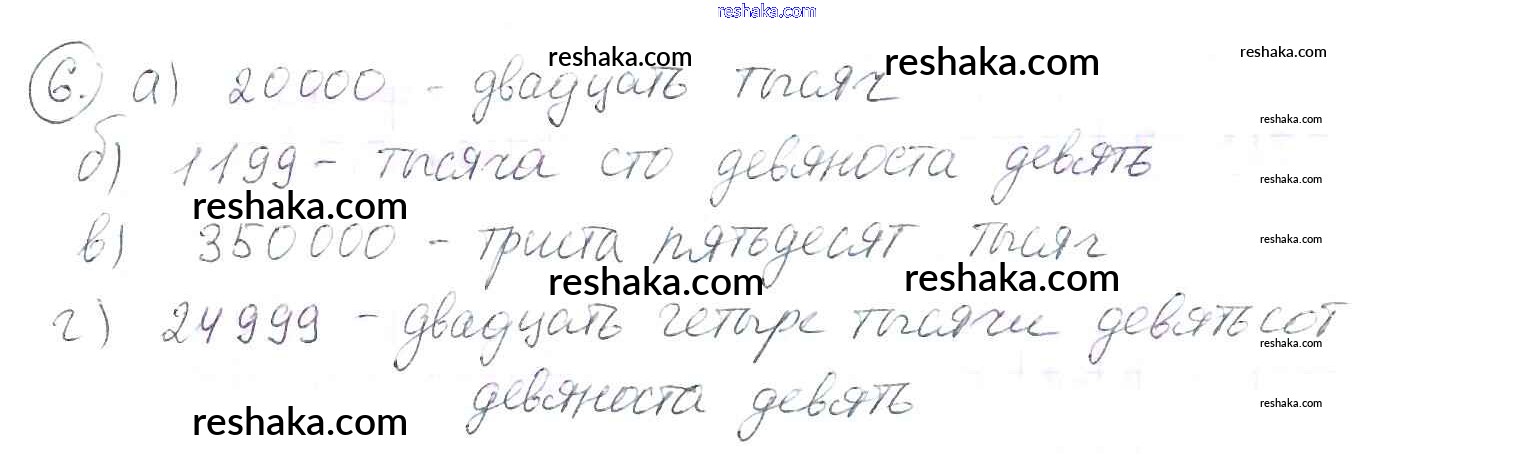 reshaka.com
reshaka.com reshaka.com reshaka.com
6. а) 20000 - двадцать тысяч
reshaka.com
б) 1199 - тысяча сто девяноста девять
reshaka.com
reshaka.com
в) 350000 - триста пятьдесят тысяч
reshaka.com
reshaka.com reshaka.com
г) 24999 - двадцать четыре тысячи девятьсот
reshaka.com
девяноста девять
reshaka.com
reshaka.com